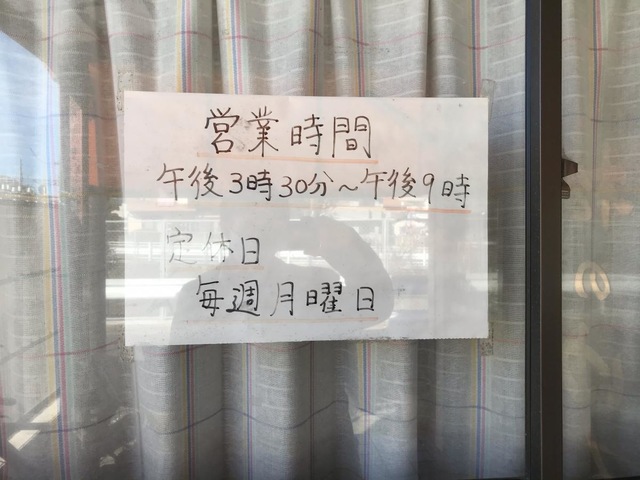 営業時間
午後3時30分~午後9時
定休日
毎週月曜日